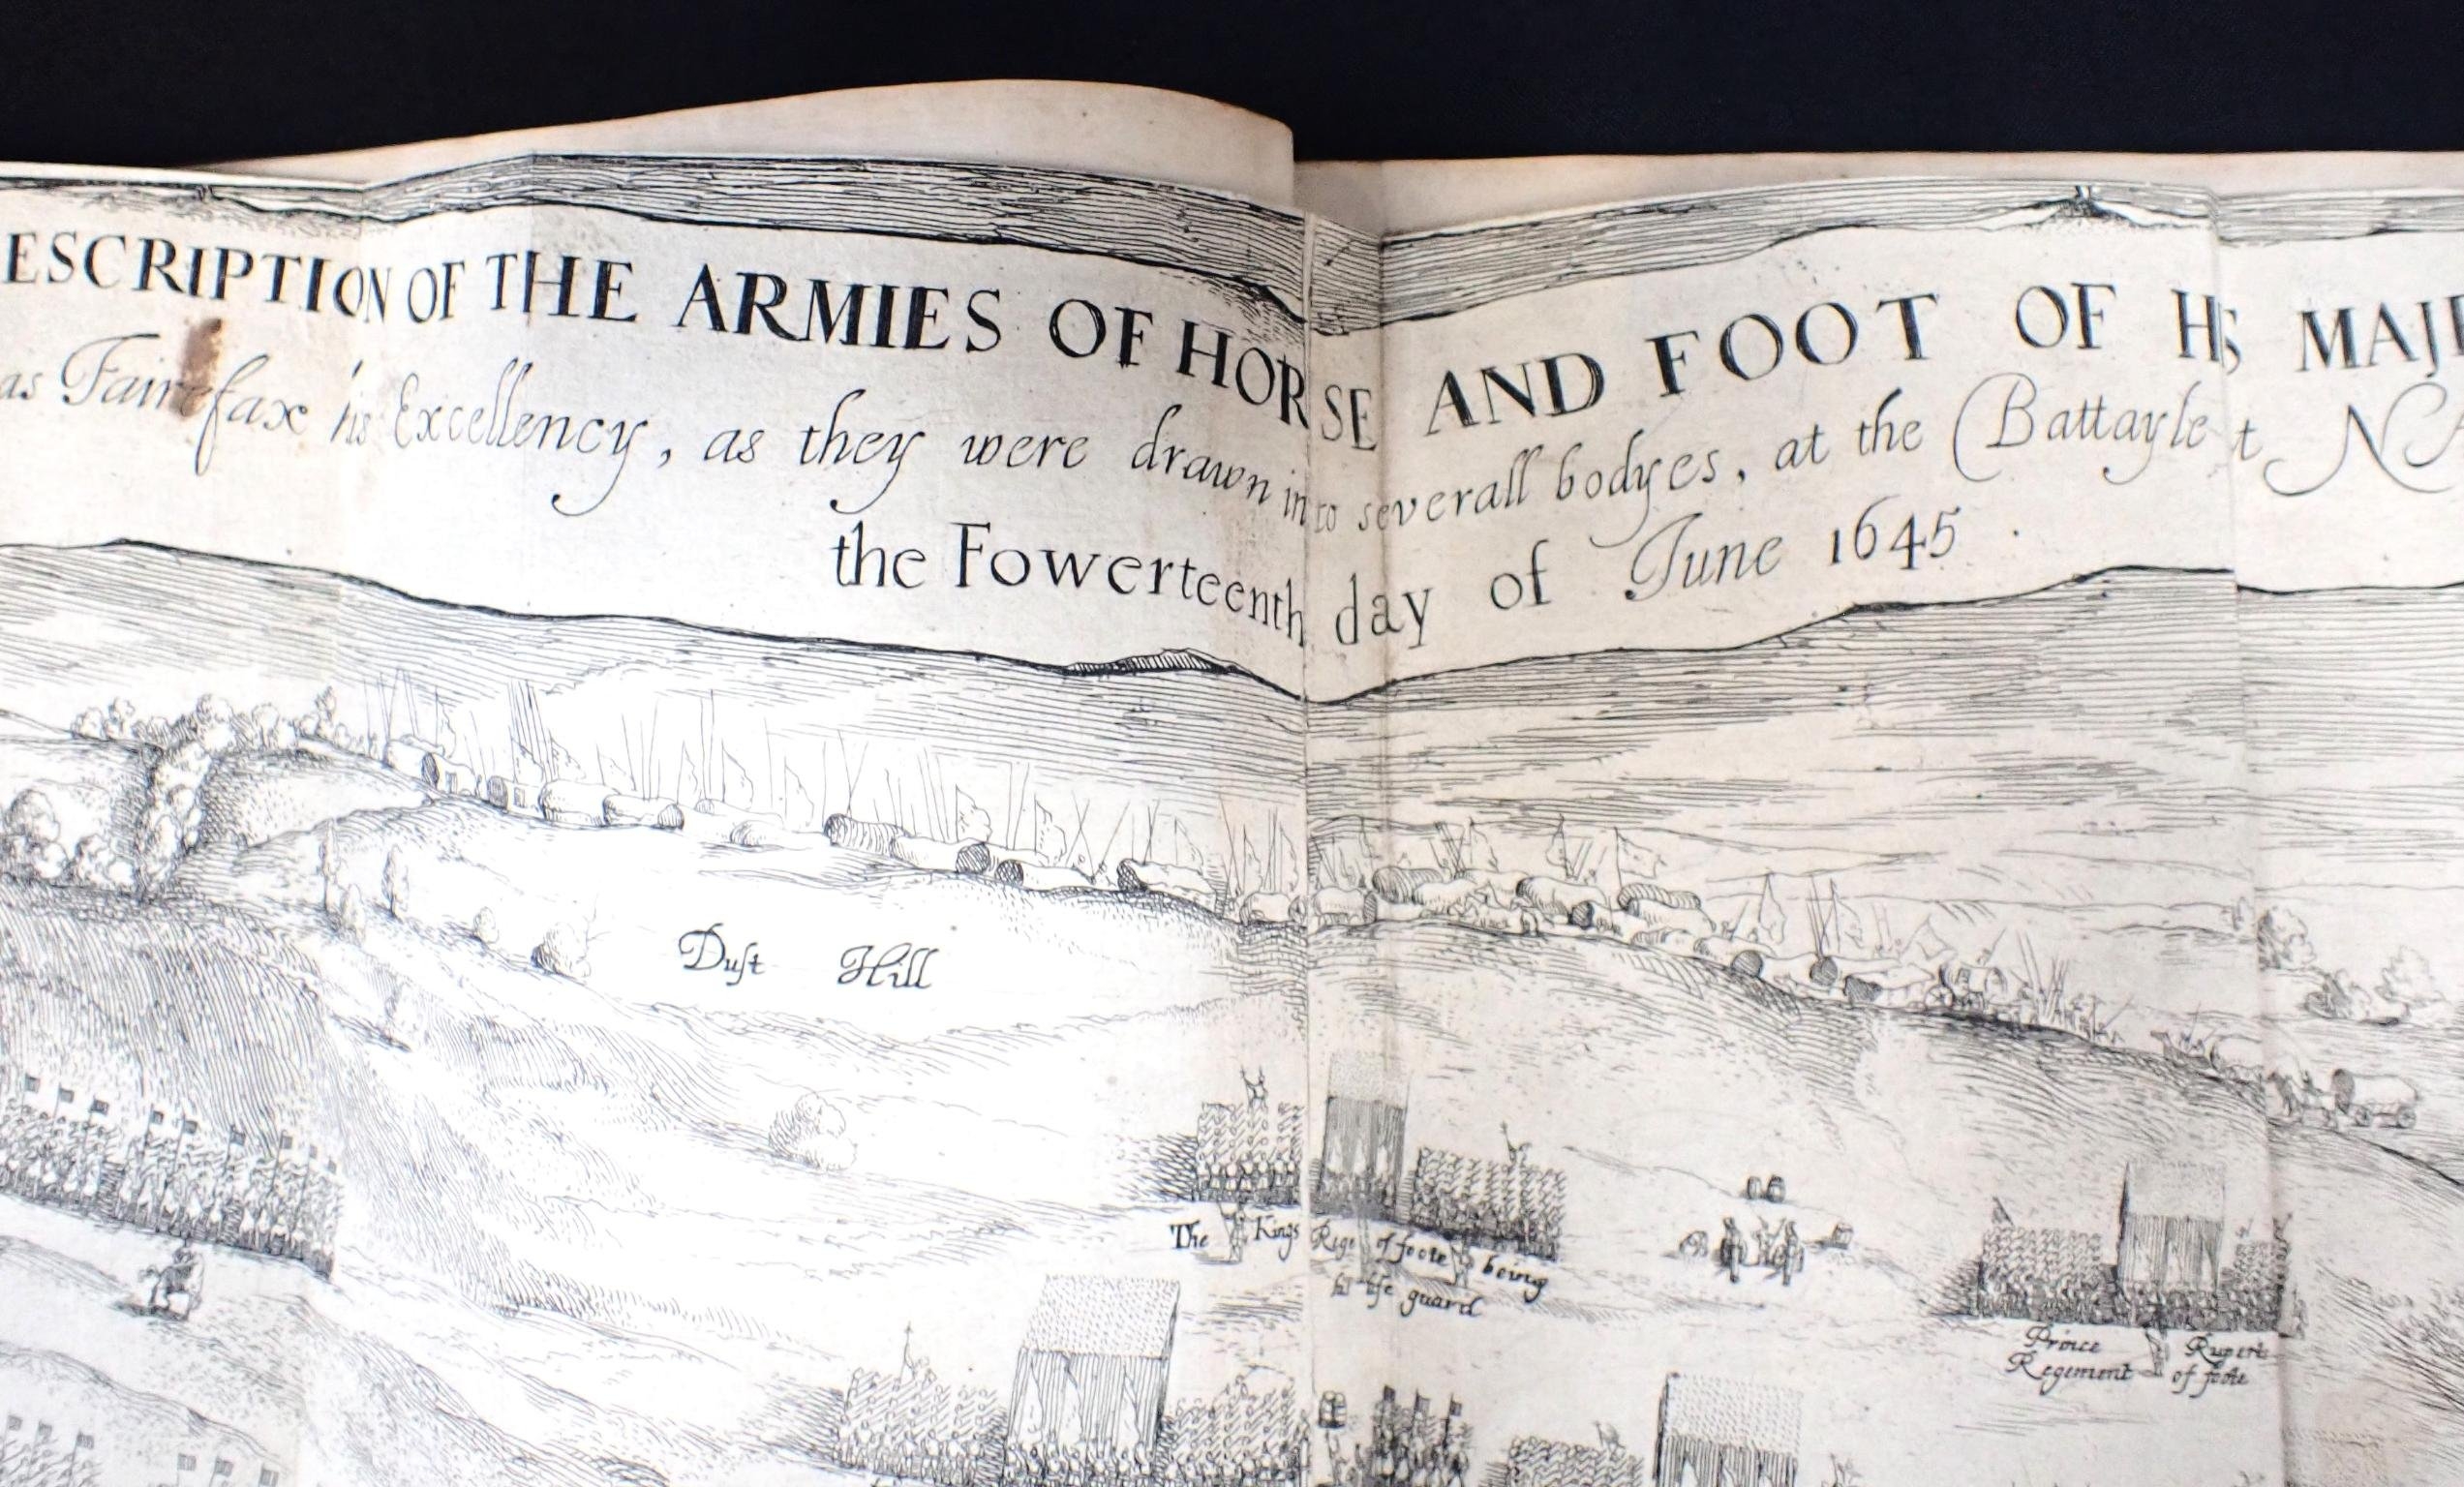 ESCRIPTION OF THE ARMIES OF HORSE AND FOOT OF HIS MAJE
as Fairefax his Excellency, as they were drawn into severall bodyes, at the Battayle at NA
the Fowerteenth day of June 1645.
Duſt Hill
The Kings Rege of foote being
his life guard
Prince Ruperts
Regement of foote